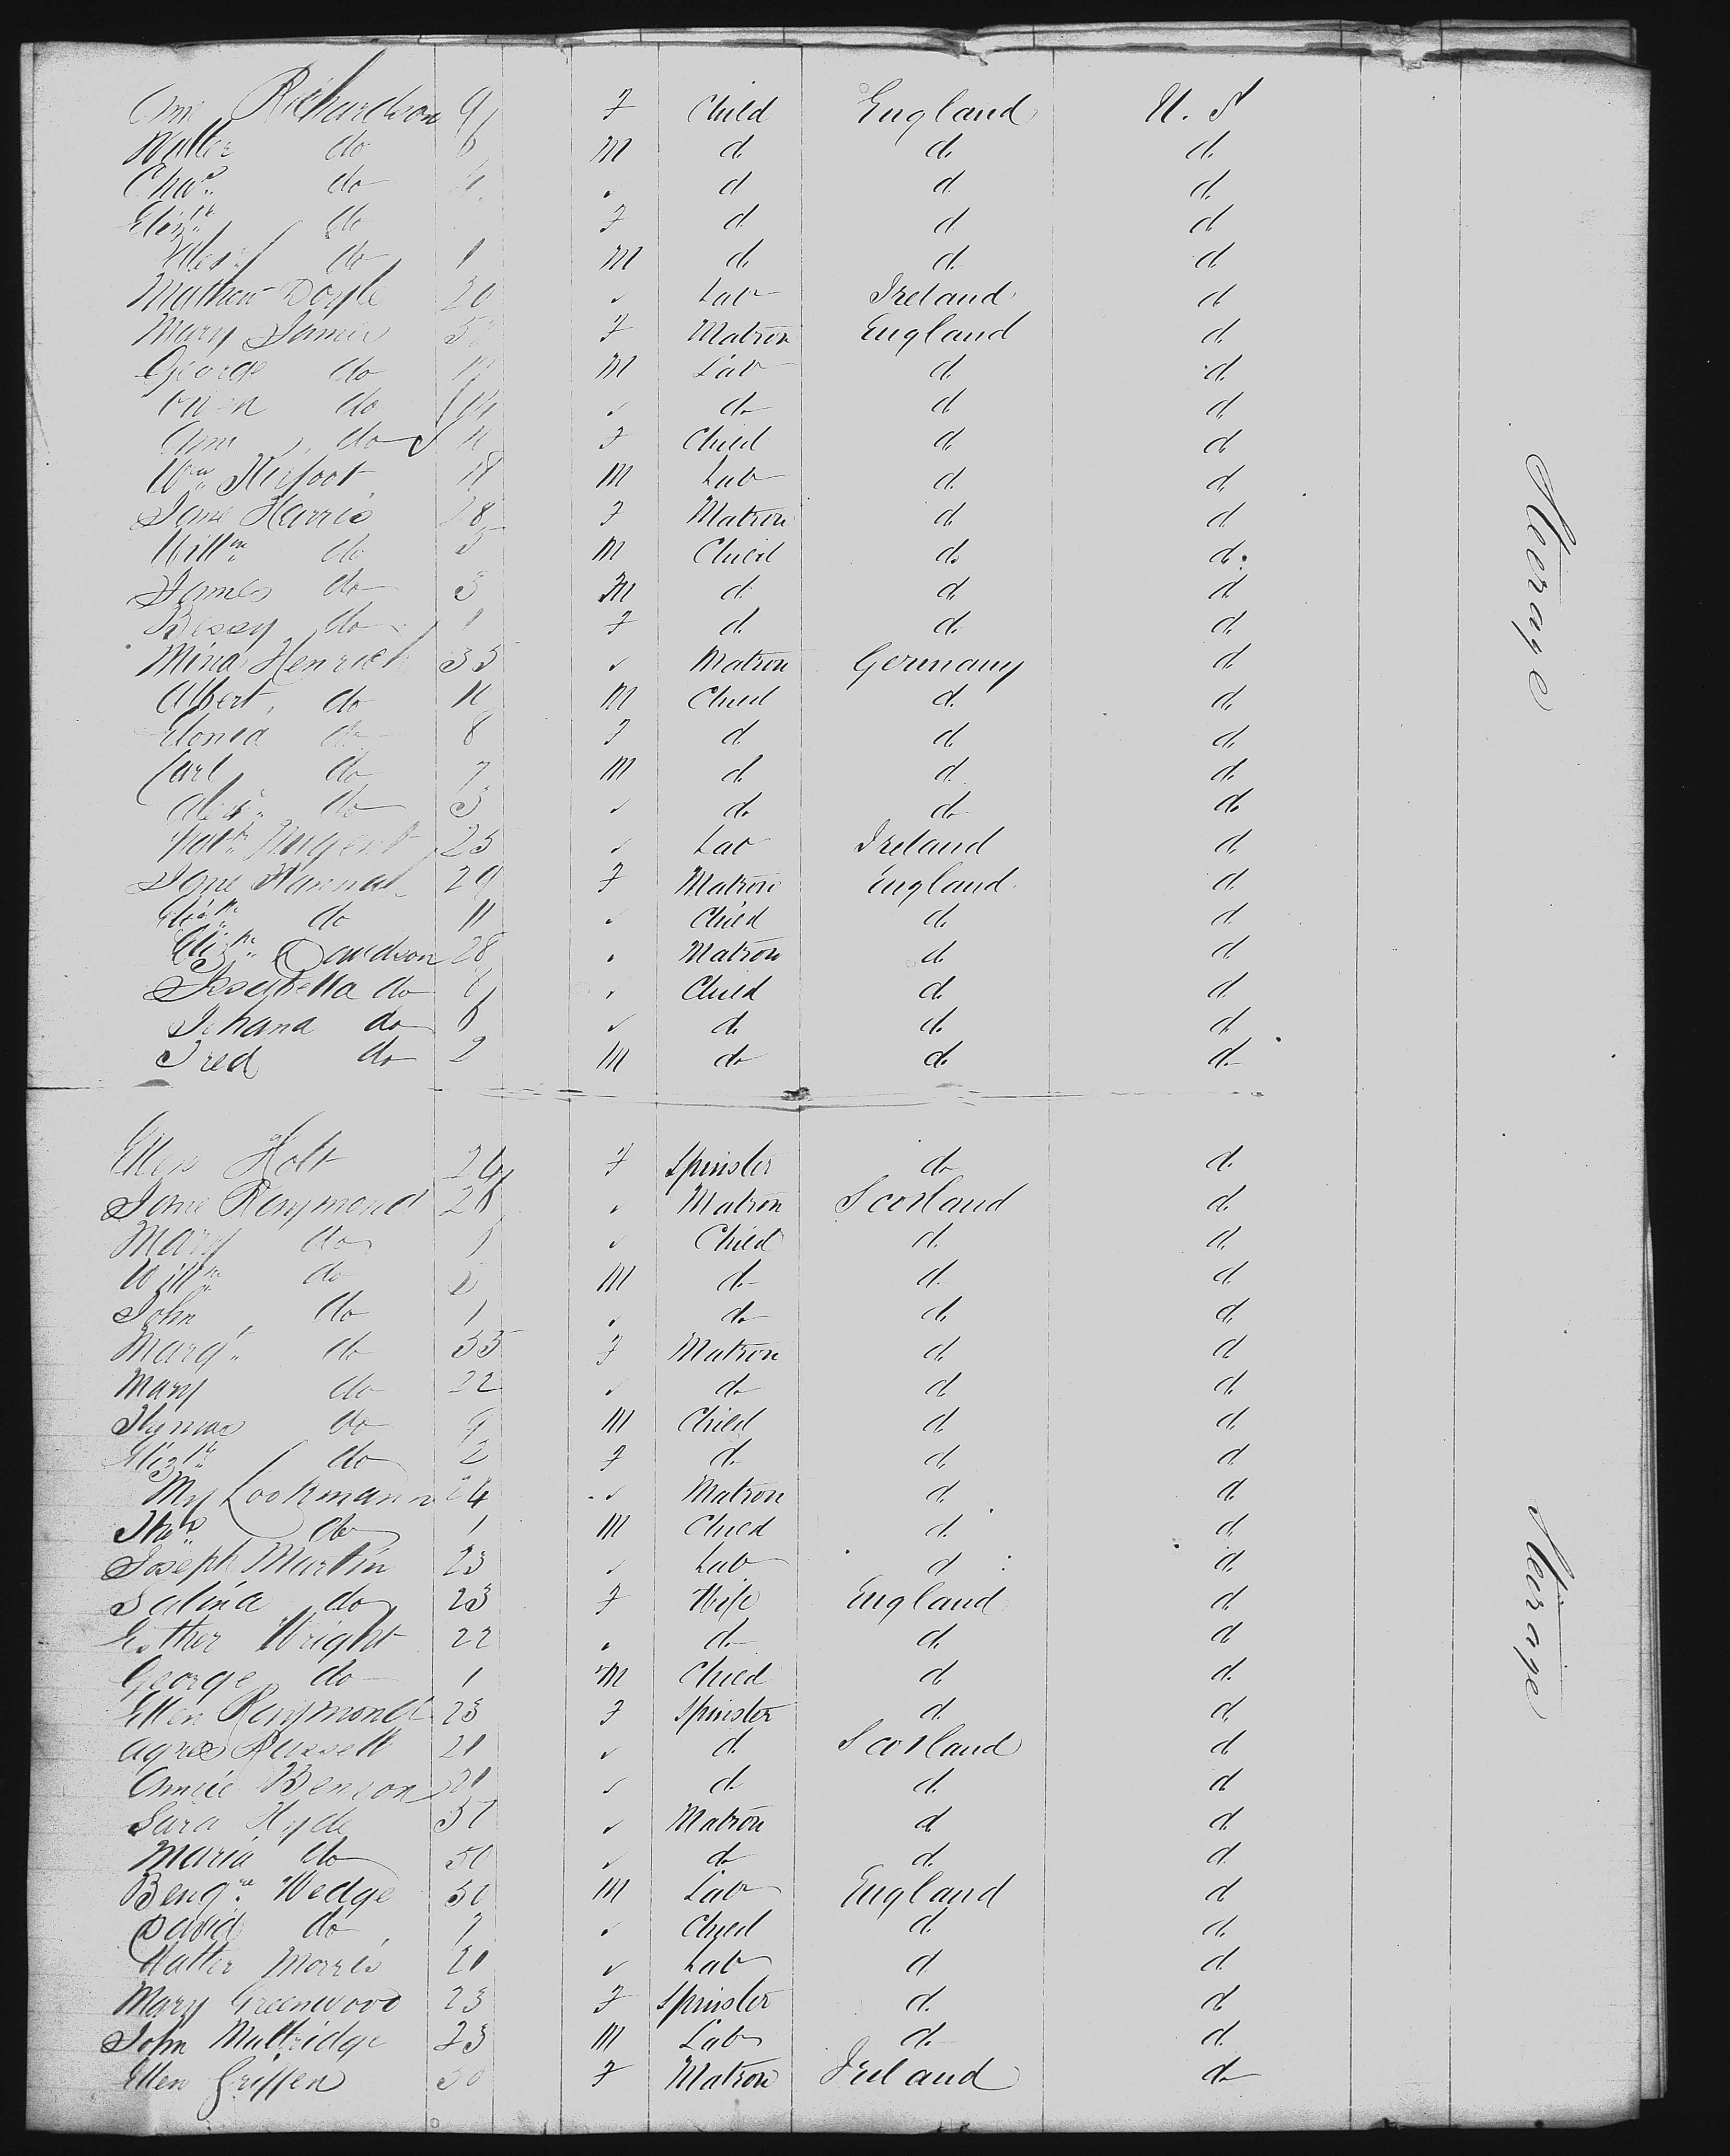 Ann Richardson 9 F Child England U. S
Walter do 6 M d d d
Chas do 4 " d d d
Elizth do F d d d
Alexr do 1 M d d d
Mathew Doyle 20 " Lab Ireland d
Mary James F Matron England d
George do M Lab d d
Owen do 14 " do d d
Ann do 11 F Child d d
Wm Kirfoot 18 M Lab d d
Jane Harris 28 F Matron d d
Willm do 5 M Child d d
James do 3 M d d d
Bessy do 1 F d d d
Mina Henrich 35 " Matron Germany d
Albert do 11 M Child d d
do 8 F d d d
Carl do 7 M d d d
Alexr do 3 " d do do
Patk Nugent 25 " Lab Ireland d
Jane Hannah 29 F Matron England d
Elizth do 11 " Child d d
Elizth Davidson 28 " Matron d d
Issabella do 8 " Child d d
Johana do 6 " d d d
Fred do 2 M do d d
Ellen Holt 24 F Spinster do d
Jane Raymond 26 " Matron Scotland d
Mary do " Child d d
Willm do M d d d
John do 1 " do d d
Margt do 35 F Matron d d
Mary do 22 " do d d
do 9 M Child d d
Elizth do 2 F d d d
My Lookmann 24 " Matron d d
Thos do 1 M Child d d
Joseph Martin 23 " Lab d d
Salina do 23 F Wife England d
Esther Wright 22 " d d d
George do 1 M Child d d
Ellen Raymond 23 F Spinster d d
Agnes Russell 21 " d Scotland d
Annie Benson 21 " d d d
Sara Hyde " Matron d d
Maria do 50 " do d d
Benjn Wedge 50 M Lab England d
David do 7 " Child d d
Walter Morris 21 " Lab d d
Mary Greenwood 23 F Spinster d d
John Multridge 23 M Lab d d
Ellen Griffen 50 F Matron Ireland d
Steerage
Steerage